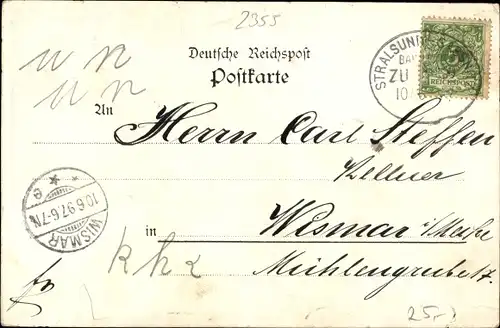 2355
Deutsche Reichspost
Postkarte
An
Herrn Carl Steffen
Kellner
in Wismar i/Meckl
Mühlengrube 7.
STRALSUND
BAHN
ZU
10
5
REICHSPOST
WISMAR
10.6.97.6-7N.
e
khz
25,-